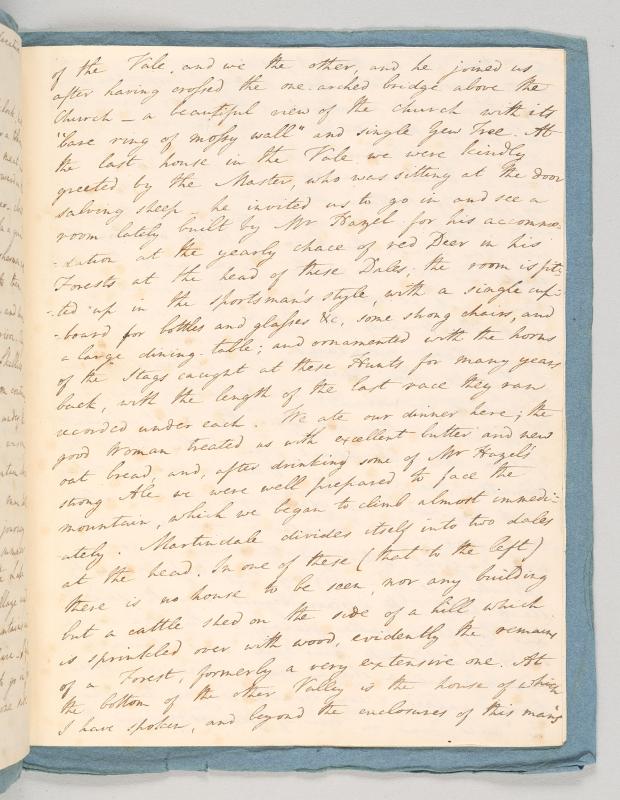 of the Vale, and we the other, and he joined us
after having crossed the one-arched bridge above the
Church – a beautiful view of the church with its
"bare ring of mossy wall" and single Yew Tree. At
the last house in the Vale we were kindly
greeted by the Master, who was sitting at the door
salving sheep he invited us to go in and see a
room lately built by Mr Hazel for his accommo-
-dation at the yearly chace of red Deer in his
Forests at the head of these Dales; the room is fit-
-ted up in the sportsman's style, with a single cup-
-board for bottles and glasses &c, some strong chairs, and
a large dining-table; and ornamented with the horns
of the Stags caught at these Hunts for many years
back, with the length of the last race they ran
recorded under each. We ate our dinner here; the
good Woman treated us with excellent butter and new
oat bread, and, after drinking some of Mr Hazel's
strong Ale we were well prepared to face the
mountain, which we began to climb almost immedi-
ately. Martindale divides itself into two dales
at the head. In one of these (that to the left)
there is no house to be seen, nor any building
but a cattle shed on the side of a hill which
is sprinkled over with wood, evidently the remains
of a Forest, formerly a very extensive one. At
the bottom of the other Valley is the house of which
I have spoken, and beyond the enclosures of this man's